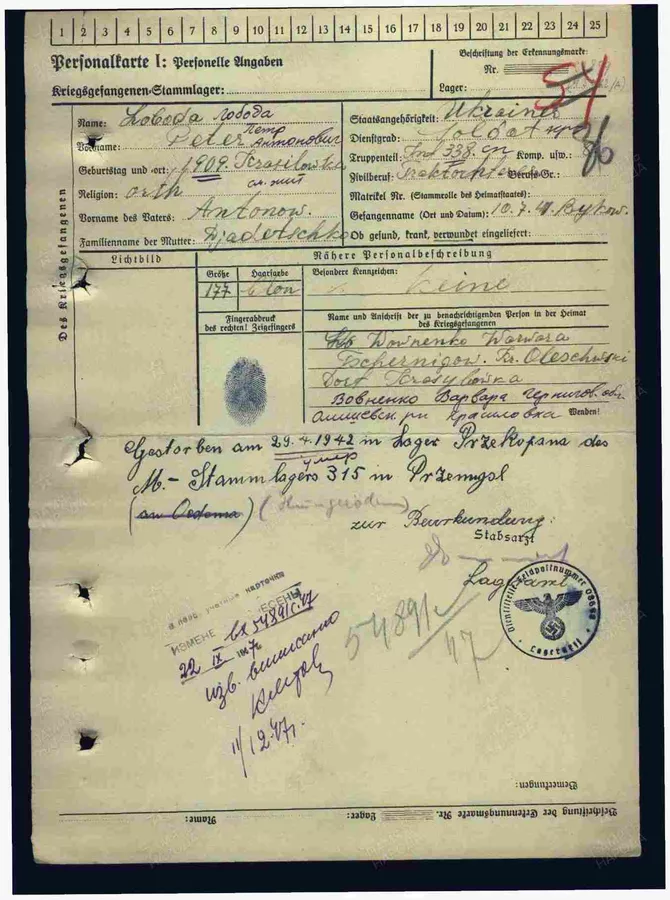 1 2 3 4 5 6 7 8 9 10 11 12 13 14 15 16 17 18 19 20 21 22 23 24 25
Personalkarte I: Personelle Angaben
Kriegsgefangenen-Stammlager:
Beschriftung der Erkennungsmarke:
Nr.
Lager:
54
Des Kriegsgefangenen
Name: Loboda Лобода
Vorname: Peter Петр Антонович
Geburtstag und -ort: 1909
Religion: orth
Vorname des Vaters: Antonow.
Familienname der Mutter: Djadetschko
Staatsangehörigkeit: Ukrainer
Dienstgrad: Soldat
Truppenteil: Inf 338. Komp. usw.:
Zivilberuf: Berufs-Gr.:
Matrikel Nr. (Stammrolle des Heimatstaates):
Gefangennahme (Ort und Datum): 10.7.41. Bychow.
Ob gesund, krank, verwundet eingeliefert:
Lichtbild
Nähere Personalbeschreibung
Größe Haarfarbe
177 blon
Besondere Kennzeichen:
keine
Fingerabdruck
des rechten! Zeigefingers
Name und Anschrift der zu benachrichtigenden Person in der Heimat
des Kriegsgefangenen
Wownenko Warwara
Tschernigow. Kr. Oleschwski
Dorf Krasylowka
Вовненко Варвара Чернигов. обл.
Олишевск р-н Красиловка
Wenden!
Gestorben am 29.4.1942 in Lager Przekopana des
умер
M.-Stammlagers 315 in Przemysl
(an Oedema)
zur Beurkundung:
Stabsarzt
Lagerarzt
Dienststelle Feldpostnummer 08698
Lagerarzt
в перв. учетная карточка
ИЗМЕНЕ ЕСЕНЫ
вх 54891с.47
22 IX 1947г.
изв. выписано
11/12.47г.
54891с
47
Bemerkungen:
Beschriftung der Erkennungsmarke Nr. Lager: Name: